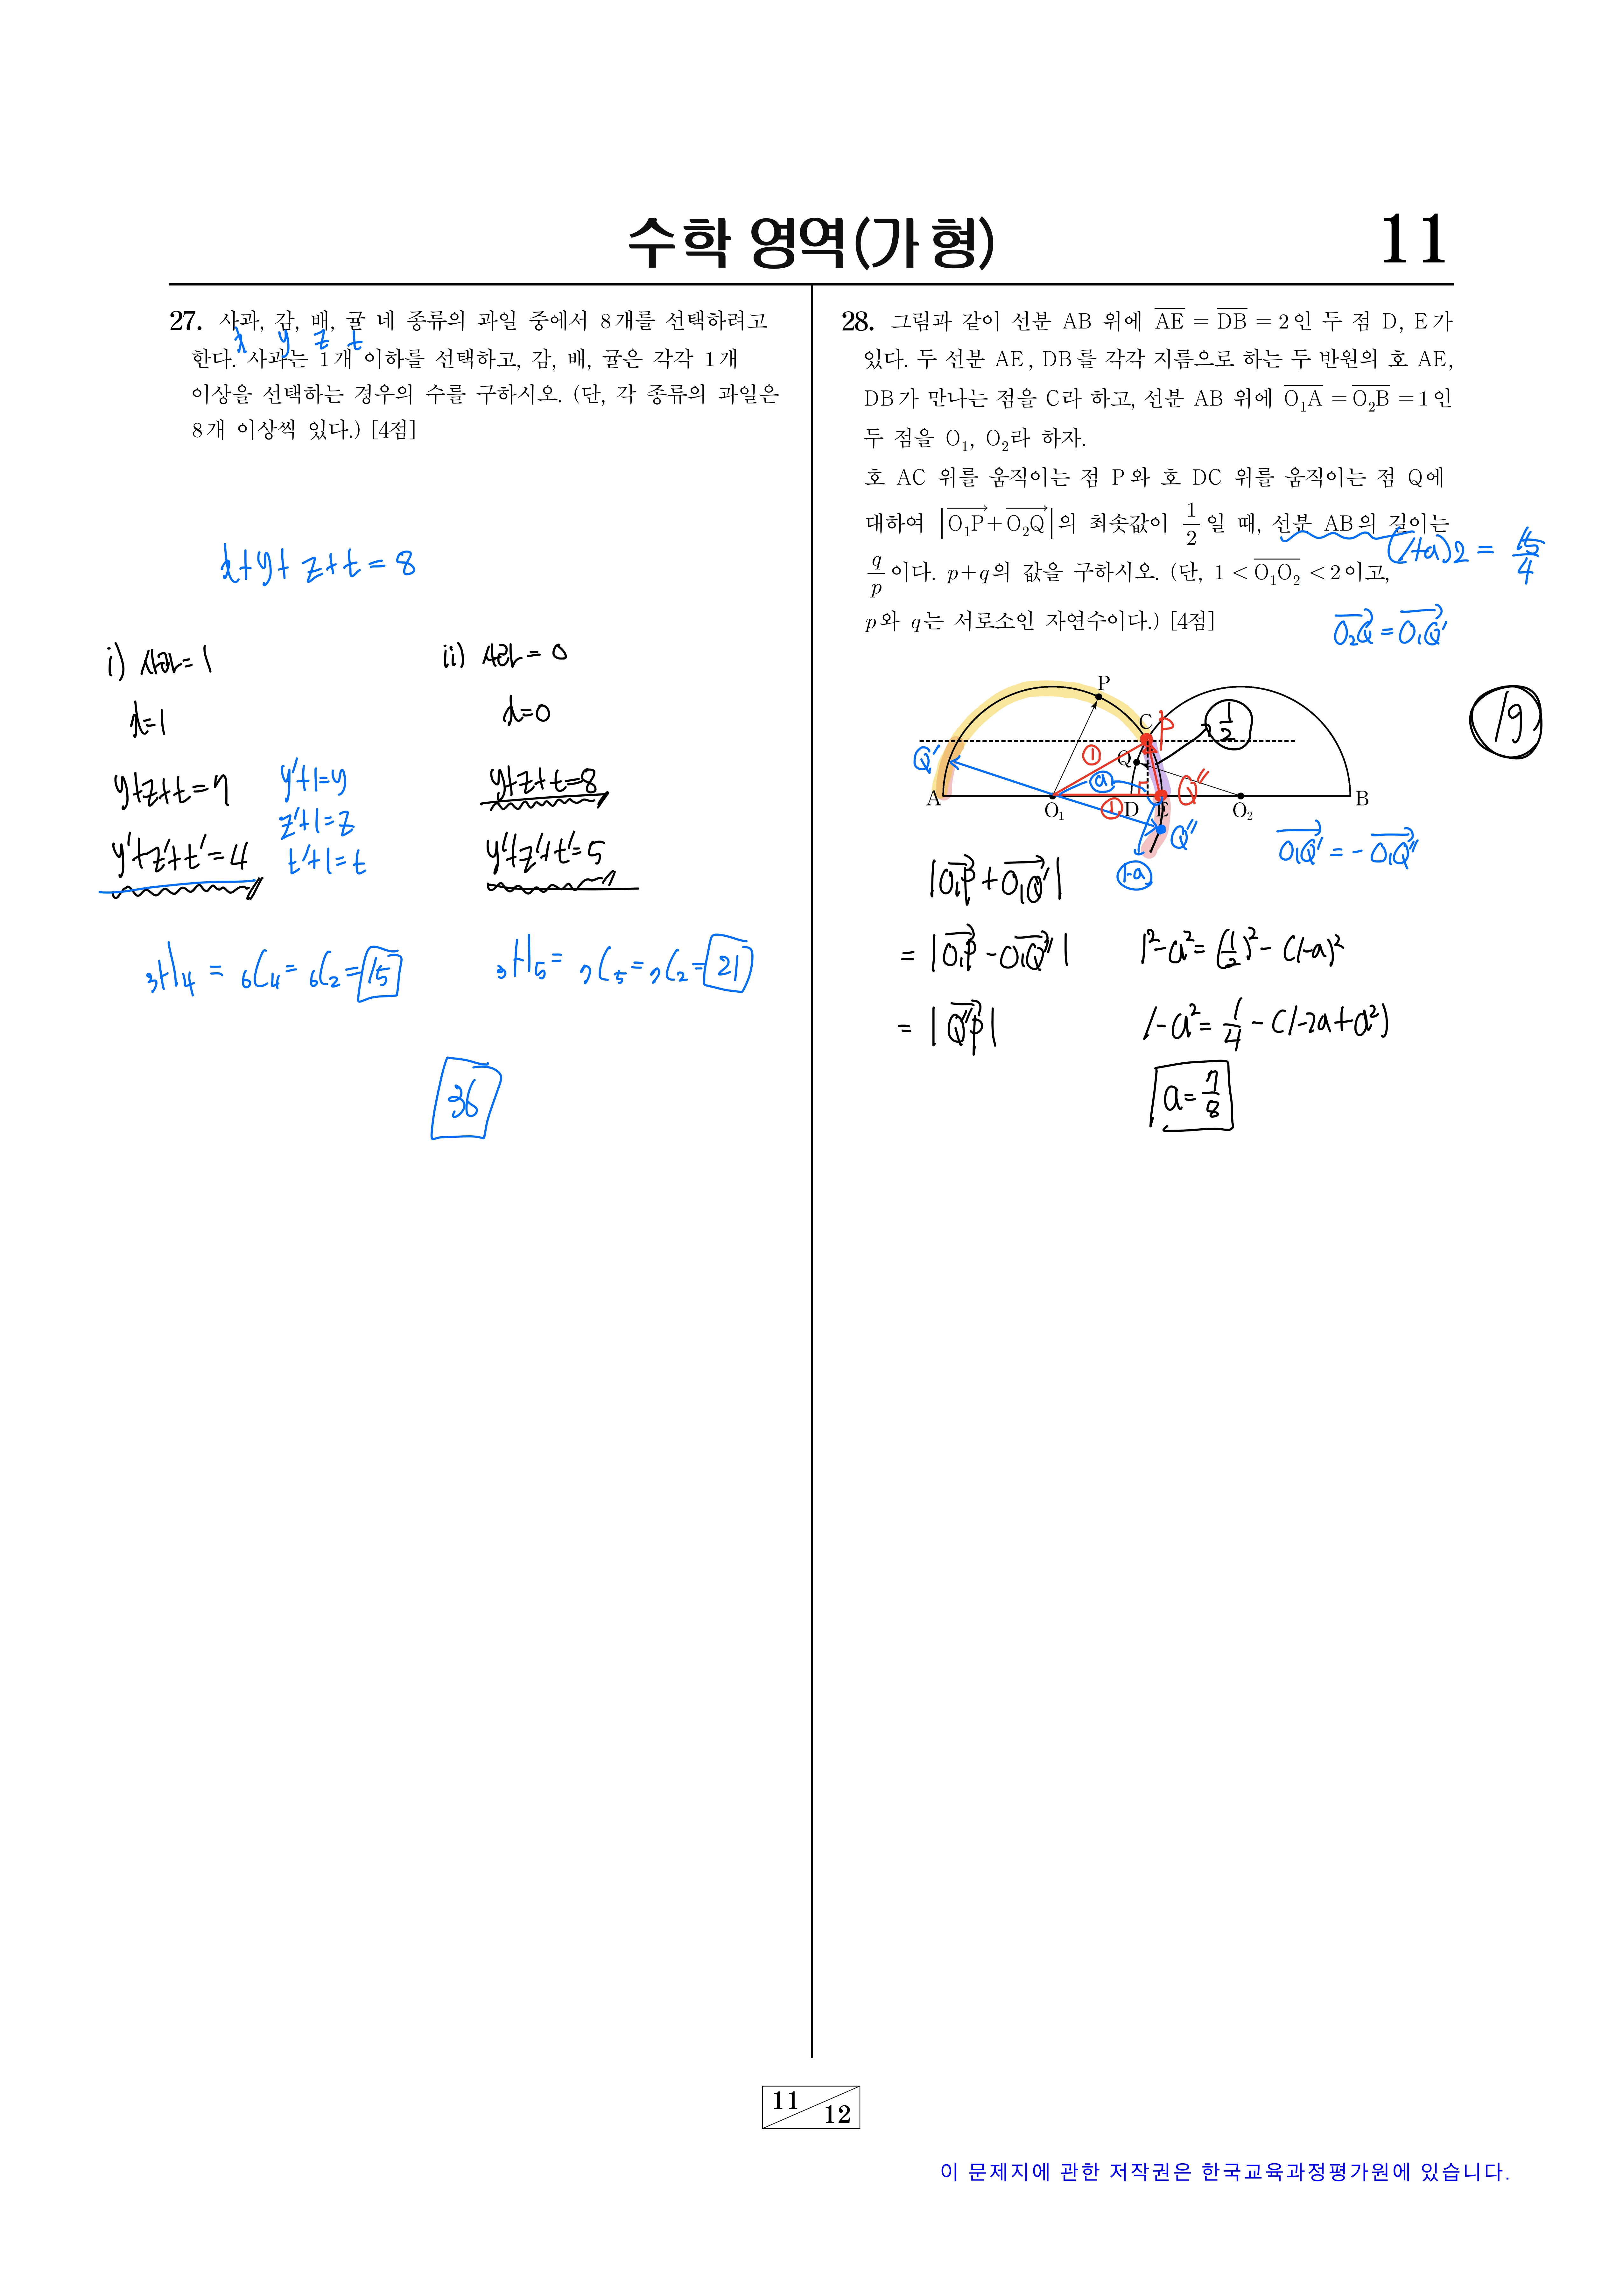 수학 영역(가 형)
11
27. 사과, 감, 배, 귤 네 종류의 과일 중에서 8개를 선택하려고
x y z t
한다. 사과는 1개 이하를 선택하고, 감, 배, 귤은 각각 1개
이상을 선택하는 경우의 수를 구하시오. (단, 각 종류의 과일은
8개 이상씩 있다.) [4점]
x+y+z+t=8
i) 사과=1
x=1
y+z+t=7
y'+z'+t'=4
y'+1=y
z'+1=z
t'+1=t
₃H₄ = ₆C₄ = ₆C₂ = 15
ii) 사과=0
x=0
y+z+t=8
y'+z'+t'=5
₃H₅ = ₇C₅ = ₇C₂ = 21
36
28. 그림과 같이 선분 AB 위에 AE = DB = 2인 두 점 D, E가
있다. 두 선분 AE, DB를 각각 지름으로 하는 두 반원의 호 AE,
DB가 만나는 점을 C라 하고, 선분 AB 위에 O₁A = O₂B = 1인
두 점을 O₁, O₂라 하자.
호 AC 위를 움직이는 점 P와 호 DC 위를 움직이는 점 Q에
대하여 |O₁P+O₂Q|의 최솟값이 1/2일 때, 선분 AB의 길이는
q/p이다. p+q의 값을 구하시오. (단, 1 < O₁O₂ < 2이고,
p와 q는 서로소인 자연수이다.) [4점]
(1+a)2 = 15/4
O₂Q = O₁Q'
P
C P 1/2
Q' ① Q a Q''
A O₁ ① D E O₂ B
Q''
1-a
O₁Q' = -O₁Q''
19
|O₁P+O₁Q'|
= |O₁P-O₁Q''|
= |Q''P|
1²-a²=(1/2)²-(1-a)²
1-a²=1/4-(1-2a+a²)
a=7/8
11
12
이 문제지에 관한 저작권은 한국교육과정평가원에 있습니다.